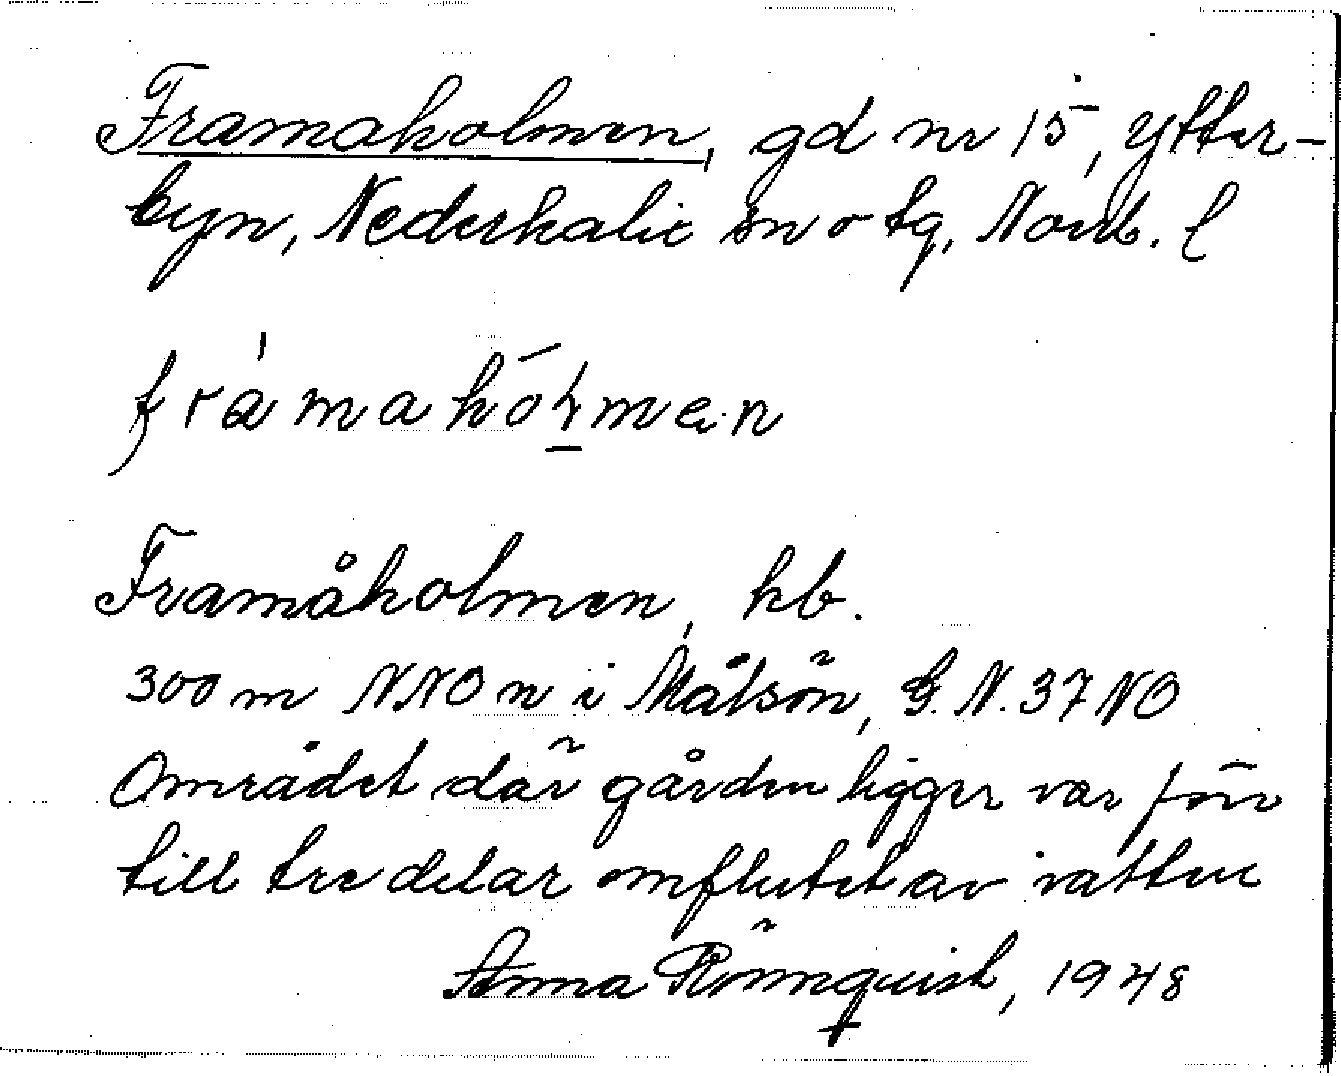 Framaholmen, gd nr 15, Ytter-
byn, Nederkalix sn o tg, Norrb. l
fràmahólmen
Framåholmen, hb.
300 m NNO n i Målsön, G. N. 37 NO
Området där gården ligger var förr
till tre delar omflutet av vatten
Anna Rönnquist, 1948